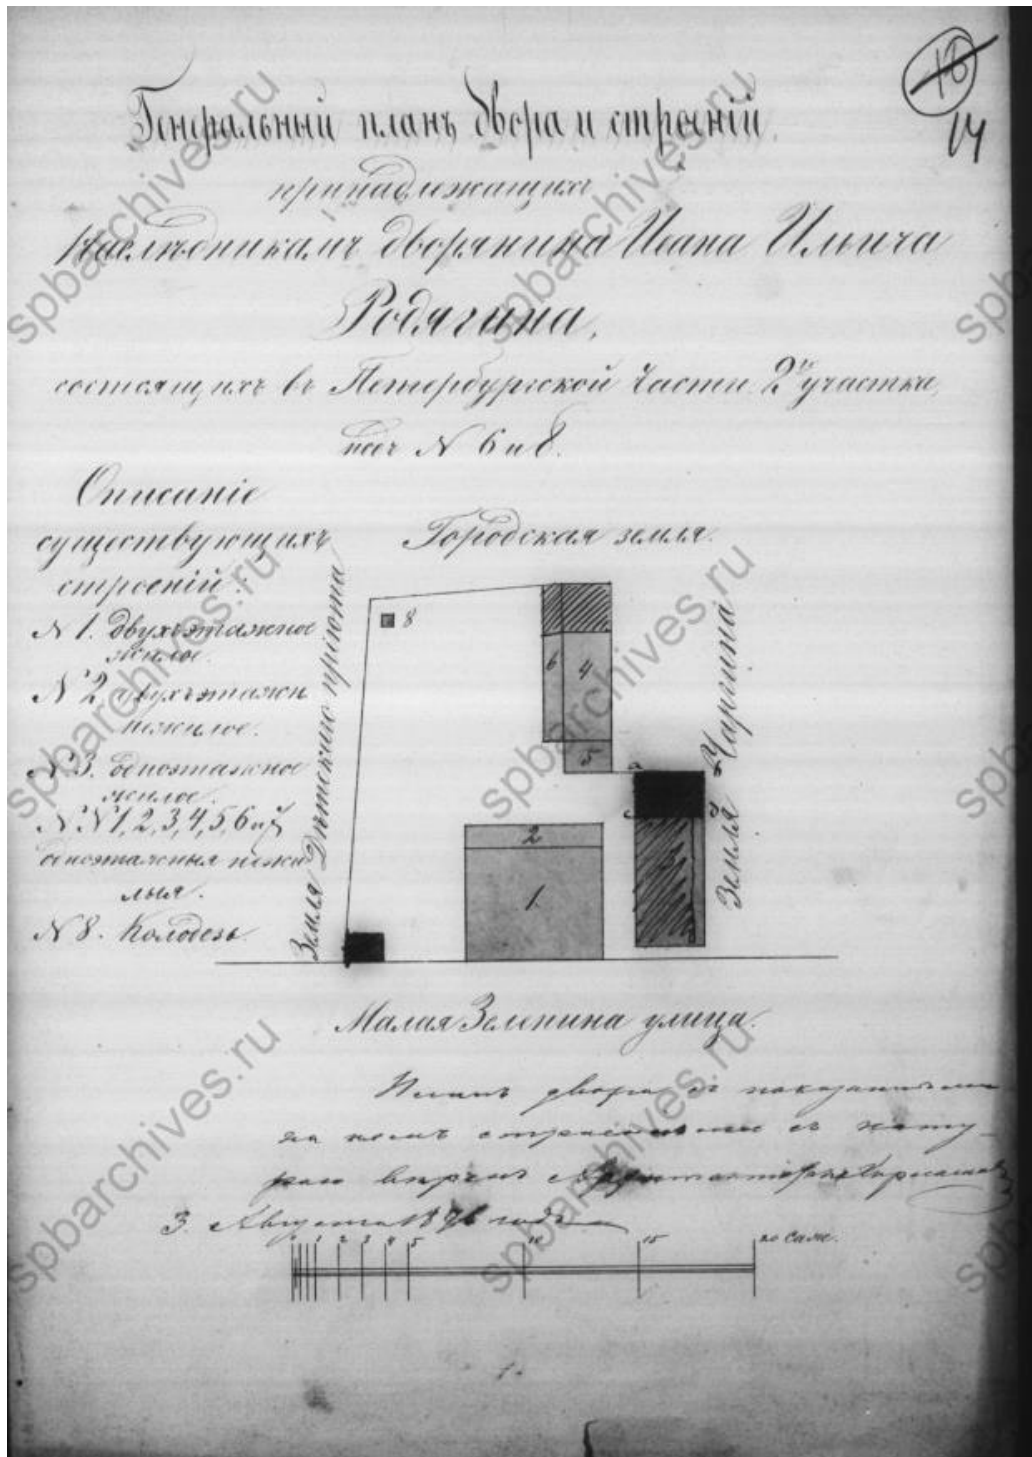 18
14
Генеральный планъ двора и строеній,
принадлежащихъ
Наслѣдникамъ дворянина Ивана Ильича
Родягина,
состоящихъ въ Петербургской части 2го участка,
подъ N 6 и 8.
Описаніе
существующихъ
строеній:
N 1. двухъэтажное
жилое.
N 2. двухъэтажн
нежилое.
N 3. одноэтажное
жилое.
N N 1, 2, 3, 4, 5, 6 и 7
одноэтажныя нежи
лыя.
N 8. Колодезь.
Городская земля.
Земля Дѣтскаго пріюта
Земля Чаргина
8
6
4
5
a
2
1
3
Малая Зеленина улица.
Планъ двора съ показанными
на немъ строеніями съ нату-
рою вѣренъ Архитекторъ
3. Августа 1876 года
1 2 3 4 5 10 15 20 саж.
spbarchives.ru